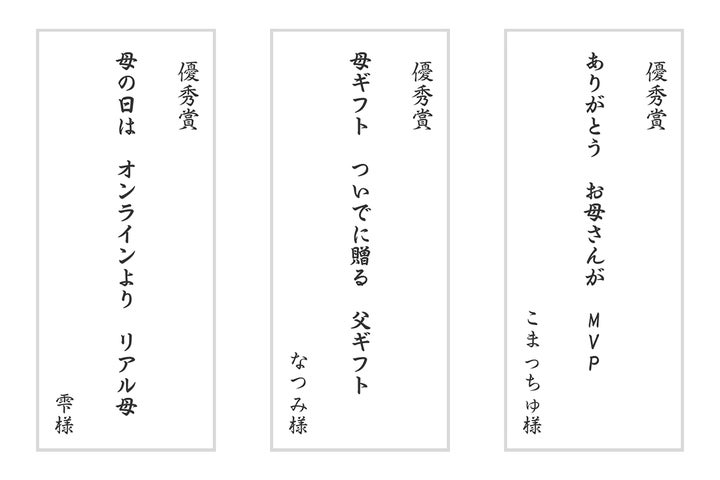 優秀賞
ありがとう　お母さんが　MVP
こまっちゅ様
優秀賞
母ギフト　ついでに贈る　父ギフト
なつみ様
優秀賞
母の日は　オンラインより　リアル母
雫様